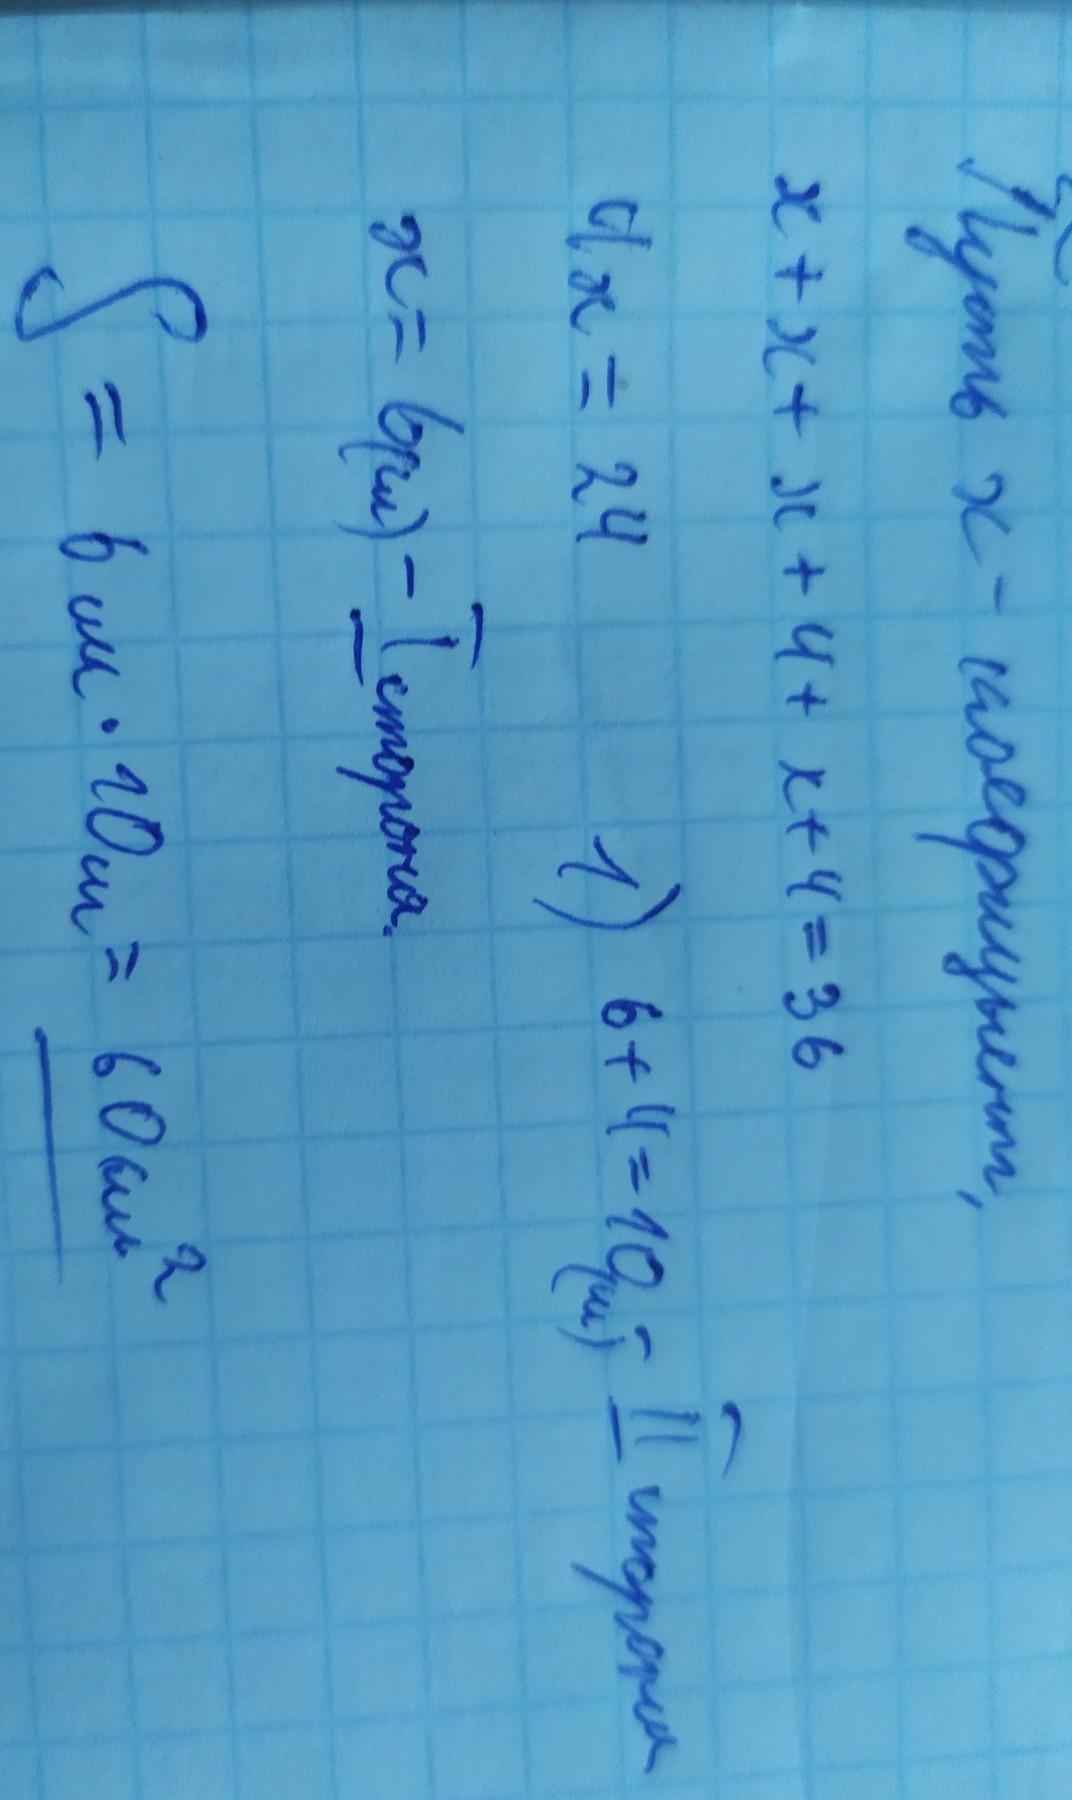 Пусть x - коефициент,
x + x + x + 4 + x + 4 = 36
4x = 24 1) 6 + 4 = 10(см) - II сторона
x = 6(см) - I сторона.
S = 6 см · 10см = 60см²